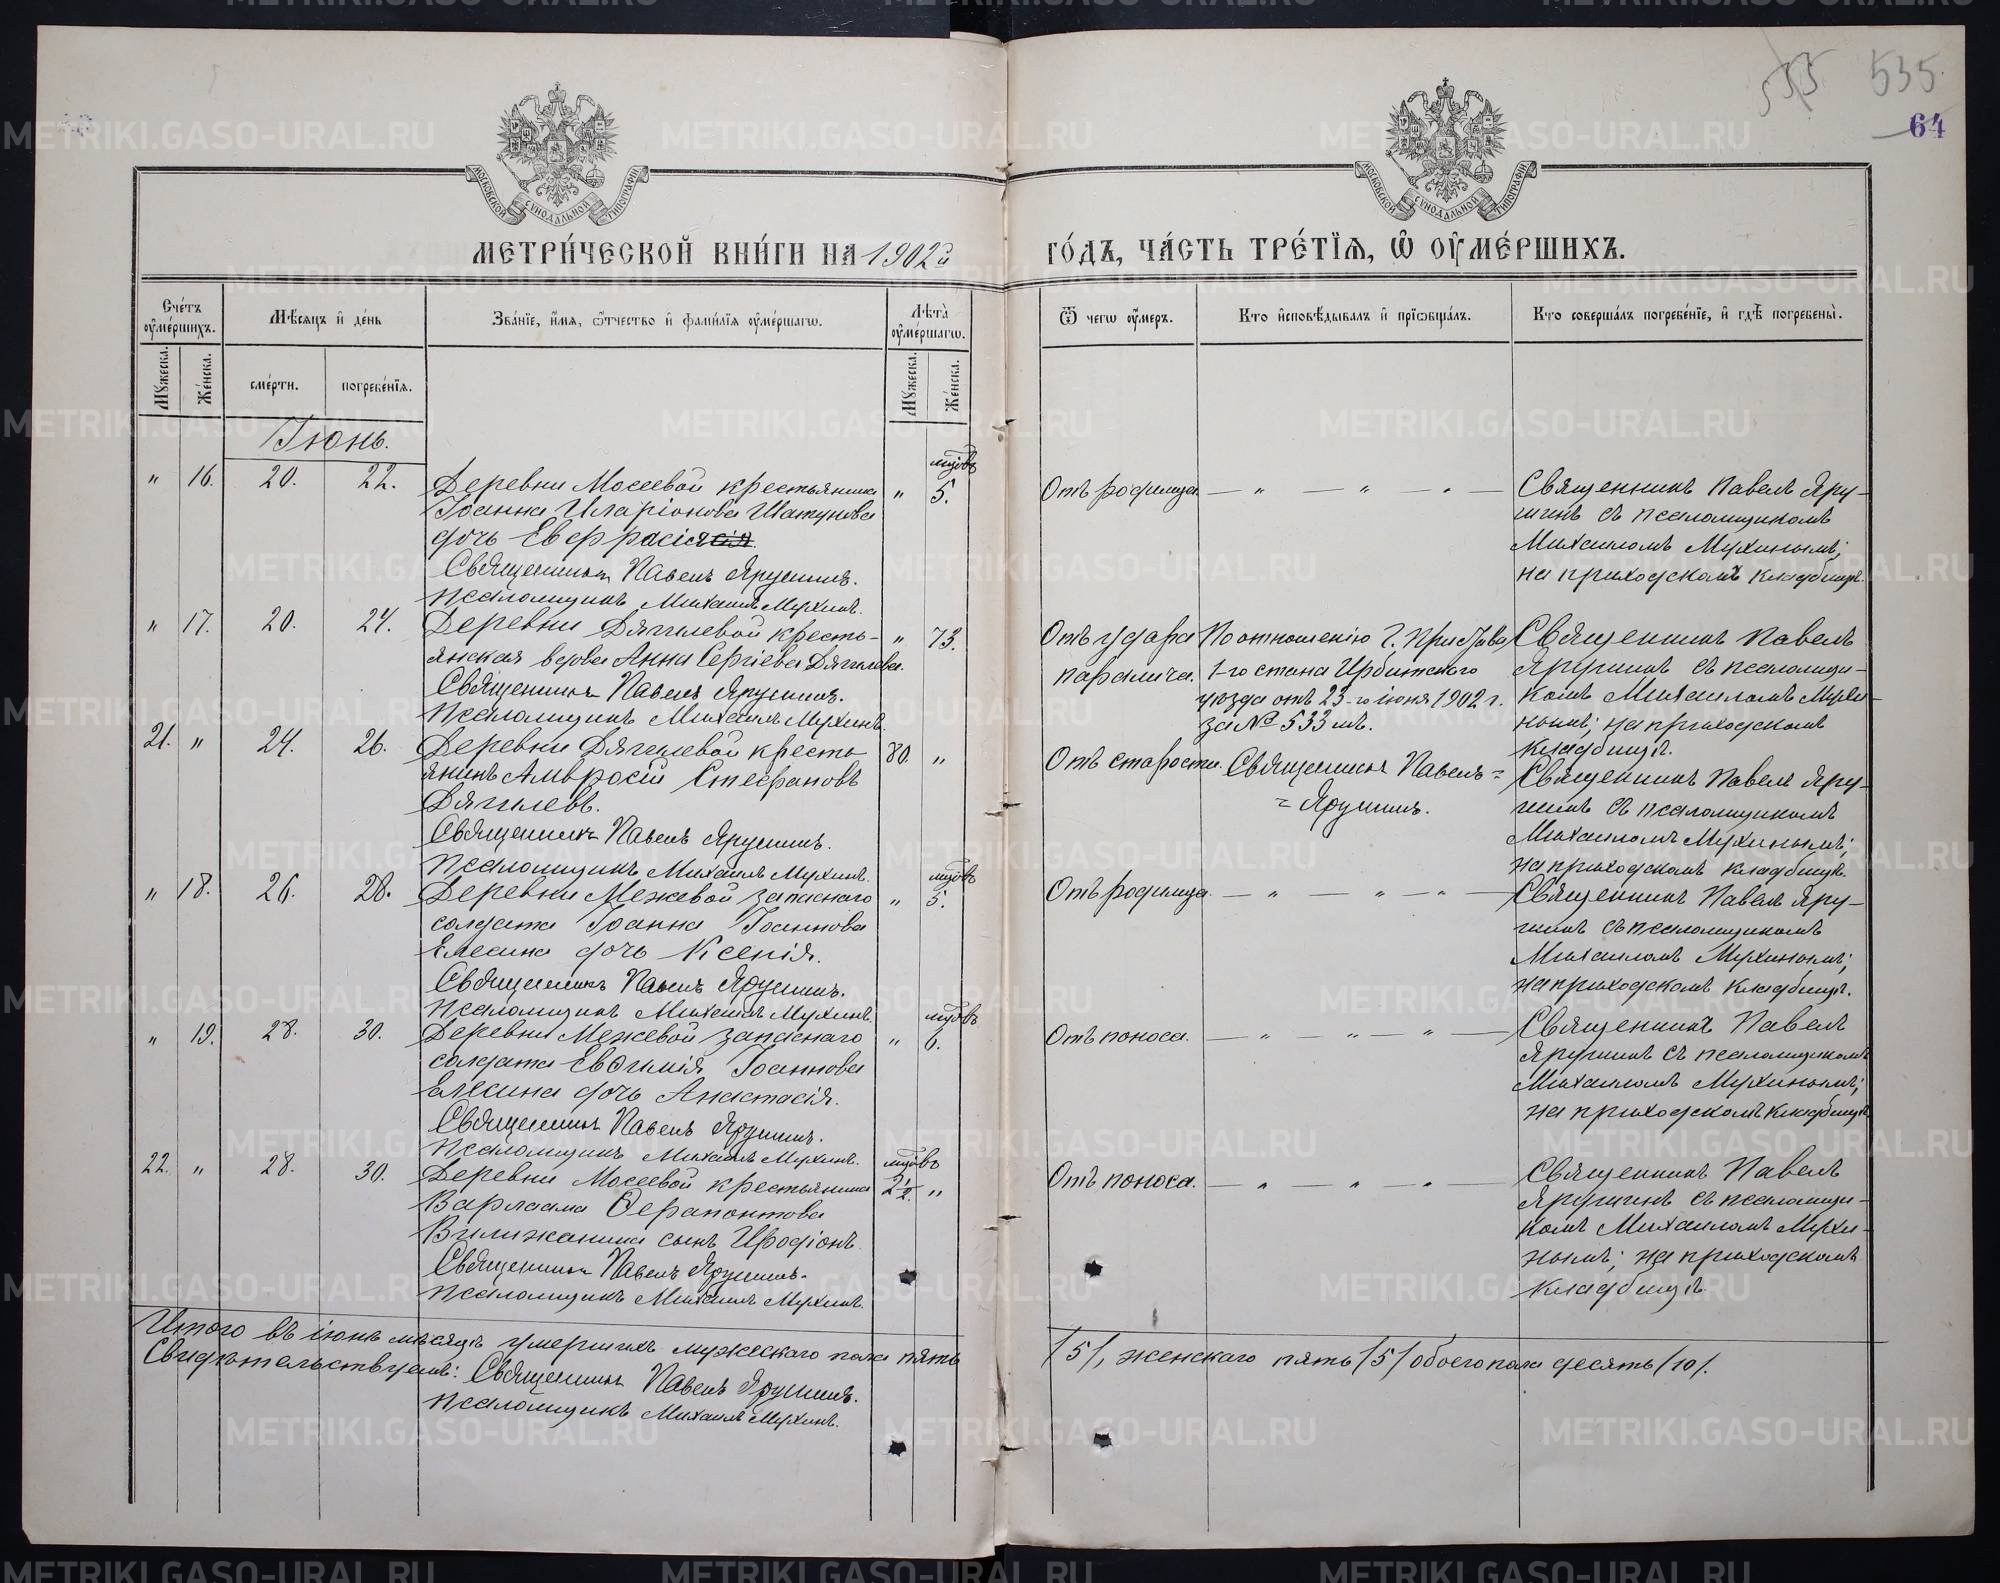 535 535.
64
МОСКОВСКОЙ СѴНОДАЛЬНОЙ ТИПОГРАФІИ
МОСКОВСКОЙ СѴНОДАЛЬНОЙ ТИПОГРАФІИ
МЕТРИ́ЧЕСКОЙ КНИ́ГИ НА 1902й
ГО́ДЪ, ЧА́СТЬ ТРЕ́ТІѦ, Ѿ ОУМЕ́РШИХЪ.
Сче́тъ оуме́ршихъ.
Мꙋжеска. Же́нска.
Мѣ́сяцъ и де́нь
сме́рти. погребе́нїѧ.
Зва́нїе, и́мѧ, ѻ́тчество и фами́лїѧ оуме́ршагѡ.
Лѣ́та оуме́ршагѡ.
Мꙋжеска. Же́нска.
Ѿ чегѡ оу́меръ.
Кто исповѣ́дывалъ и прїѡбща́лъ.
Кто соверша́лъ погребе́нїе, и гдѣ̀ погребены̀.
Іюнь.
" 16. 20. 22.
Деревни Мосеевой крестьянина
Іоанна Иларіонова Шатунова
дочь Евфрасія
Священникъ Павелъ Ярушинъ.
Псаломщикъ Михаилъ Мухинъ.
" мцовъ 5.
Отъ родимца. — " — " — " —
Священникъ Павелъ Яру-
шинъ съ псаломщикомъ
Михаиломъ Мухинымъ;
на приходскомъ кладбищѣ.
" 17. 20. 24.
Деревни Дягилевой кресть-
янская вдова Анна Сергіева Дягилева.
Священникъ Павелъ Ярушинъ.
Псаломщикъ Михаилъ Мухинъ.
" 73.
Отъ удара
паралича.
По отношенію Г. Пристава
1-го стана Ирбитскаго
уѣзда отъ 23-го іюня 1902 г.
за № 533 мъ.
Священникъ Павелъ
Ярушинъ съ псаломщи-
комъ Михаиломъ Мухи-
нымъ; на приходскомъ
кладбищѣ.
21. " 24. 26.
Деревни Дягилевой кресть-
янинъ Амвросій Стефановъ
Дягилевъ.
Священникъ Павелъ Ярушинъ.
Псаломщикъ Михаилъ Мухинъ.
80. "
Отъ старости.
Священникъ Павелъ =
= Ярушинъ.
Священникъ Павелъ Яру-
шинъ съ псаломщикомъ
Михаиломъ Мухинымъ;
на приходскомъ кладбищѣ.
" 18. 26. 28.
Деревни Межевой запаснаго
солдата Іоанна Іоаннова
Елесина дочь Ксенія.
Священникъ Павелъ Ярушинъ.
Псаломщикъ Михаилъ Мухинъ.
" мцовъ 5.
Отъ родимца. — " — " — " —
Священникъ Павелъ Яру-
шинъ съ псаломщикомъ
Михаиломъ Мухинымъ;
на приходскомъ кладбищѣ.
" 19. 28. 30.
Деревни Межевой запаснаго
солдата Евѳимія Іоаннова
Елесина дочь Анастасія.
Священникъ Павелъ Ярушинъ.
Псаломщикъ Михаилъ Мухинъ.
" мцовъ 6.
Отъ поноса. — " — " — " —
Священникъ Павелъ
Ярушинъ съ псаломщикомъ
Михаиломъ Мухинымъ;
на приходскомъ кладбищѣ
22. " 28. 30.
Деревни Мосеевой крестьянина
Варлаама Ѳерапонтова
Вилижанина сынъ Иродіонъ.
Священникъ Павелъ Ярушинъ.
Псаломщикъ Михаилъ Мухинъ.
мцовъ 2½ "
Отъ поноса. — " — " — " —
Священникъ Павелъ
Ярушинъ съ псаломщи-
комъ Михаиломъ Мухи-
нымъ; на приходскомъ
кладбищѣ.
Итого въ іюнѣ мѣсяцѣ умершихъ мужескаго пола пять
/5/, женскаго пять /5/ обоего пола десять /10/.
Свидѣтельствуемъ: Священникъ Павелъ Ярушинъ.
Псаломщикъ Михаилъ Мухинъ.
METRIKI.GASO-URAL.RU